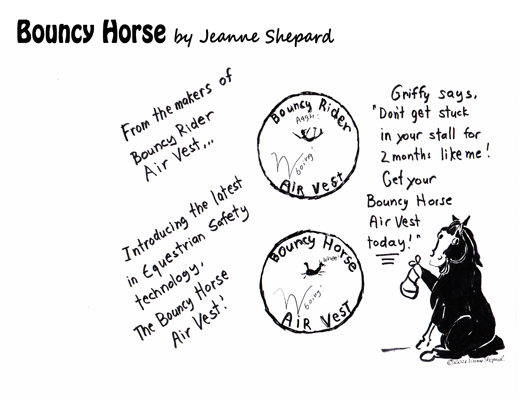 Bouncy Horse by Jeanne Shepard
From the makers of
Bouncy Rider
Air Vest...
Introducing the latest
in Equestrian Safety
technology,
The Bouncy Horse
Air Vest!
Bouncy Rider
Aagh!
Boing!
Air Vest
Bouncy Horse
Whee!
Boing!
Air Vest
Griffy says,
"Don't get stuck
in your stall for
2 months like me!
Get your
Bouncy Horse
Air Vest
today!"
Shepard